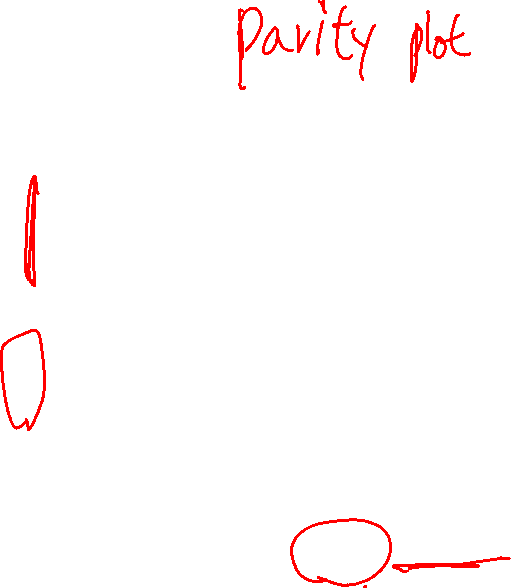 Parity plot